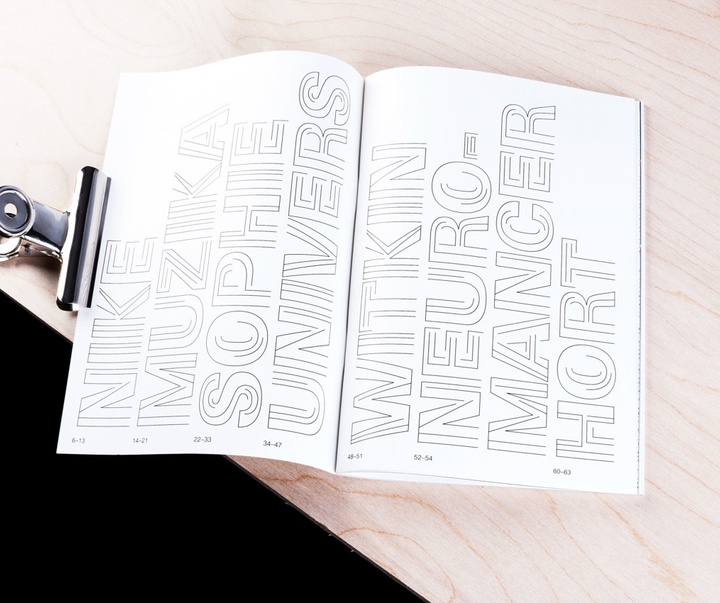 NIKE
MUZIKA
SOPHIE
UNIVERS
6–13
14–21
22–33
34–47
WITKIN
NEURO-
MANCER
HORT
48–51
52–54
60–63